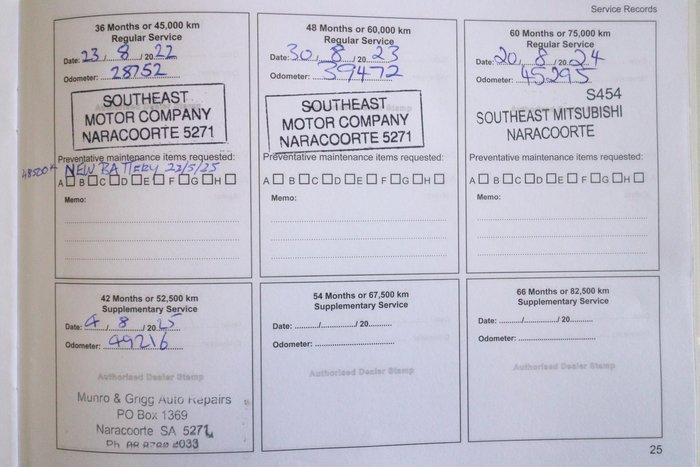 Service Records
36 Months or 45,000 km
Regular Service
Date: 23 / 8 / 2022
Odometer: 28752
SOUTHEAST
MOTOR COMPANY
NARACOORTE 5271
Preventative maintenance items requested:
48500K NEW BATTERY 22/5/25
A B C D E F G H
Memo:
48 Months or 60,000 km
Regular Service
Date: 30 / 8 / 2023
Odometer: 39472
SOUTHEAST
MOTOR COMPANY
NARACOORTE 5271
Preventative maintenance items requested:
A B C D E F G H
Memo:
60 Months or 75,000 km
Regular Service
Date: 20 / 8 / 2024
Odometer: 45295
S454
SOUTHEAST MITSUBISHI
NARACOORTE
Preventative maintenance items requested:
A B C D E F G H
Memo:
42 Months or 52,500 km
Supplementary Service
Date: 4 / 8 / 2025
Odometer: 49216
Authorised Dealer Stamp
Munro & Grigg Auto Repairs
PO Box 1369
Naracoorte SA 5271
Ph 2033
54 Months or 67,500 km
Supplementary Service
Date: ........../........../ 20..........
Odometer: ..............................
Authorised Dealer Stamp
66 Months or 82,500 km
Supplementary Service
Date: ........../........../ 20..........
Odometer: ..............................
Authorised Dealer Stamp
25